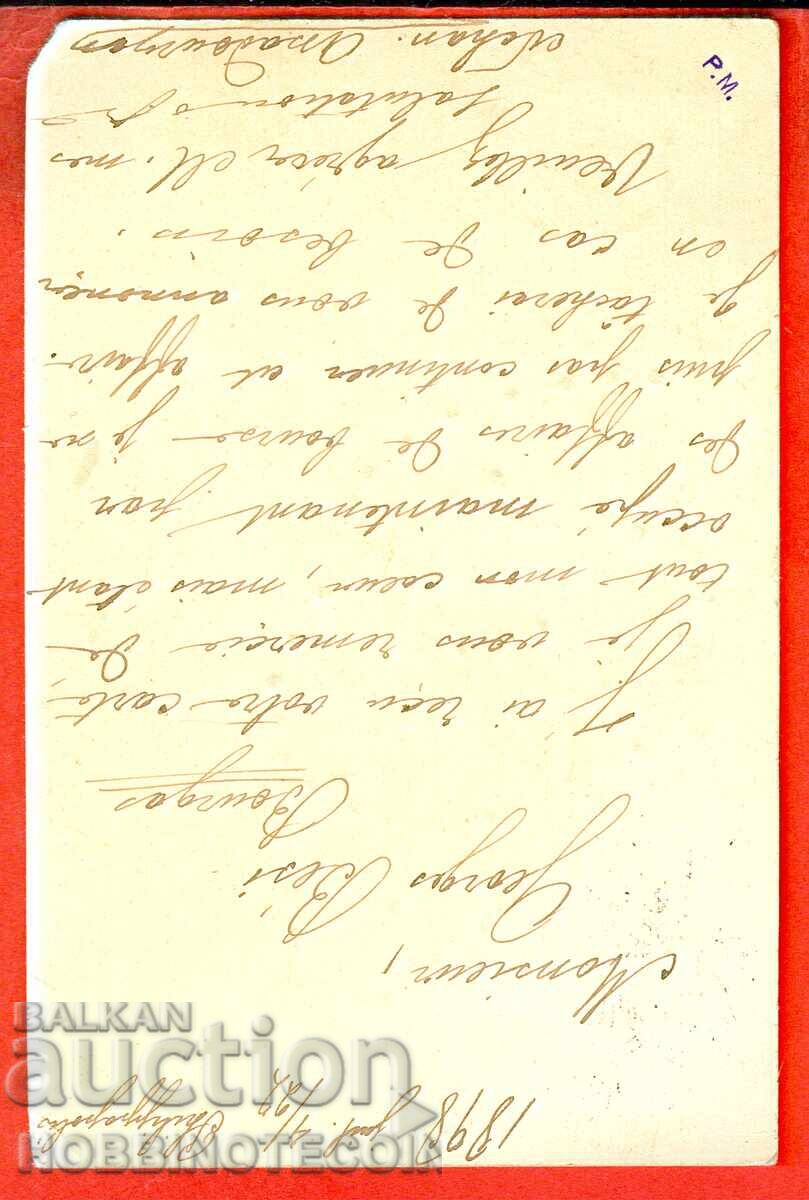 1898
Philippopolis
Monsieur,
Georges
Bourgas
J'ai reçu votre carte,
je vous remercie de
tout mon coeur, mais étant
occupé maintenant par
des affaires de bourse je ne
puis pas continuer cet affair.
Je tâcherai de vous annoncer
en cas de besoin.
Veuillez agréer M. mes
salutations
P.M.
BALKAN
auction
HOBBINOTECOM